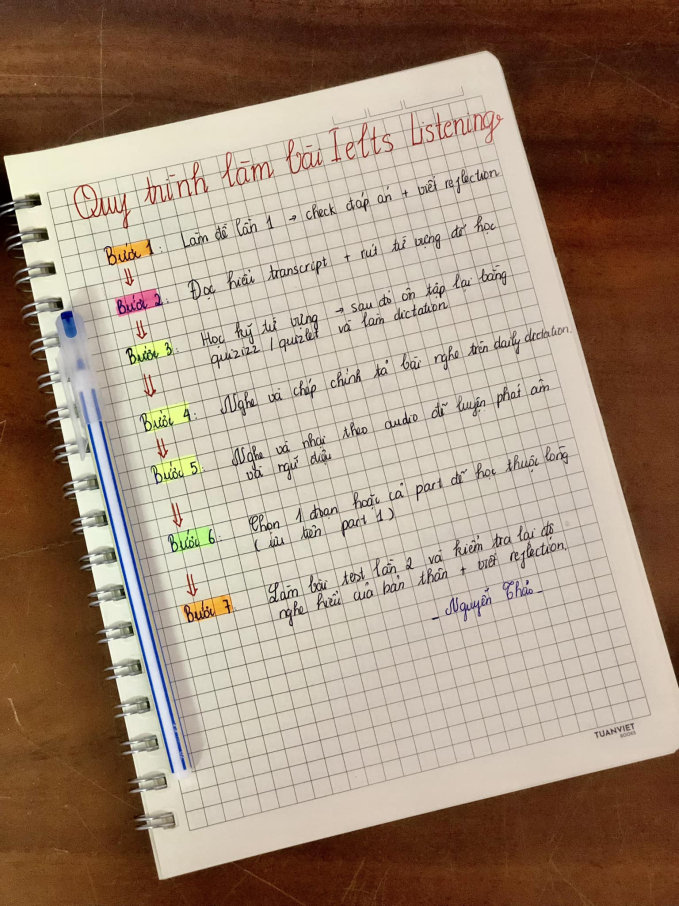 Quy trình làm bài Ielts Listening
Bước 1: Làm đề lần 1 → check đáp án + viết reflection
Bước 2: Đọc hiểu transcript + rút từ vựng để học
Bước 3: Học kỹ từ vựng → sau đó ôn tập lại bằng
quizizz / quizlet và làm dictation
Bước 4: Nghe và chép chính tả bài nghe trên daily dictation.
Bước 5: Nghe và nhại theo audio để luyện phát âm
và ngữ điệu
Bước 6: Chọn 1 đoạn hoặc cả part để học thuộc lòng
(ưu tiên part 1)
Bước 7: Làm bài test lần 2 và kiểm tra lại độ
nghe hiểu của bản thân + viết reflection.
_ Nguyễn Thảo _
TUANVIET
BOOKS